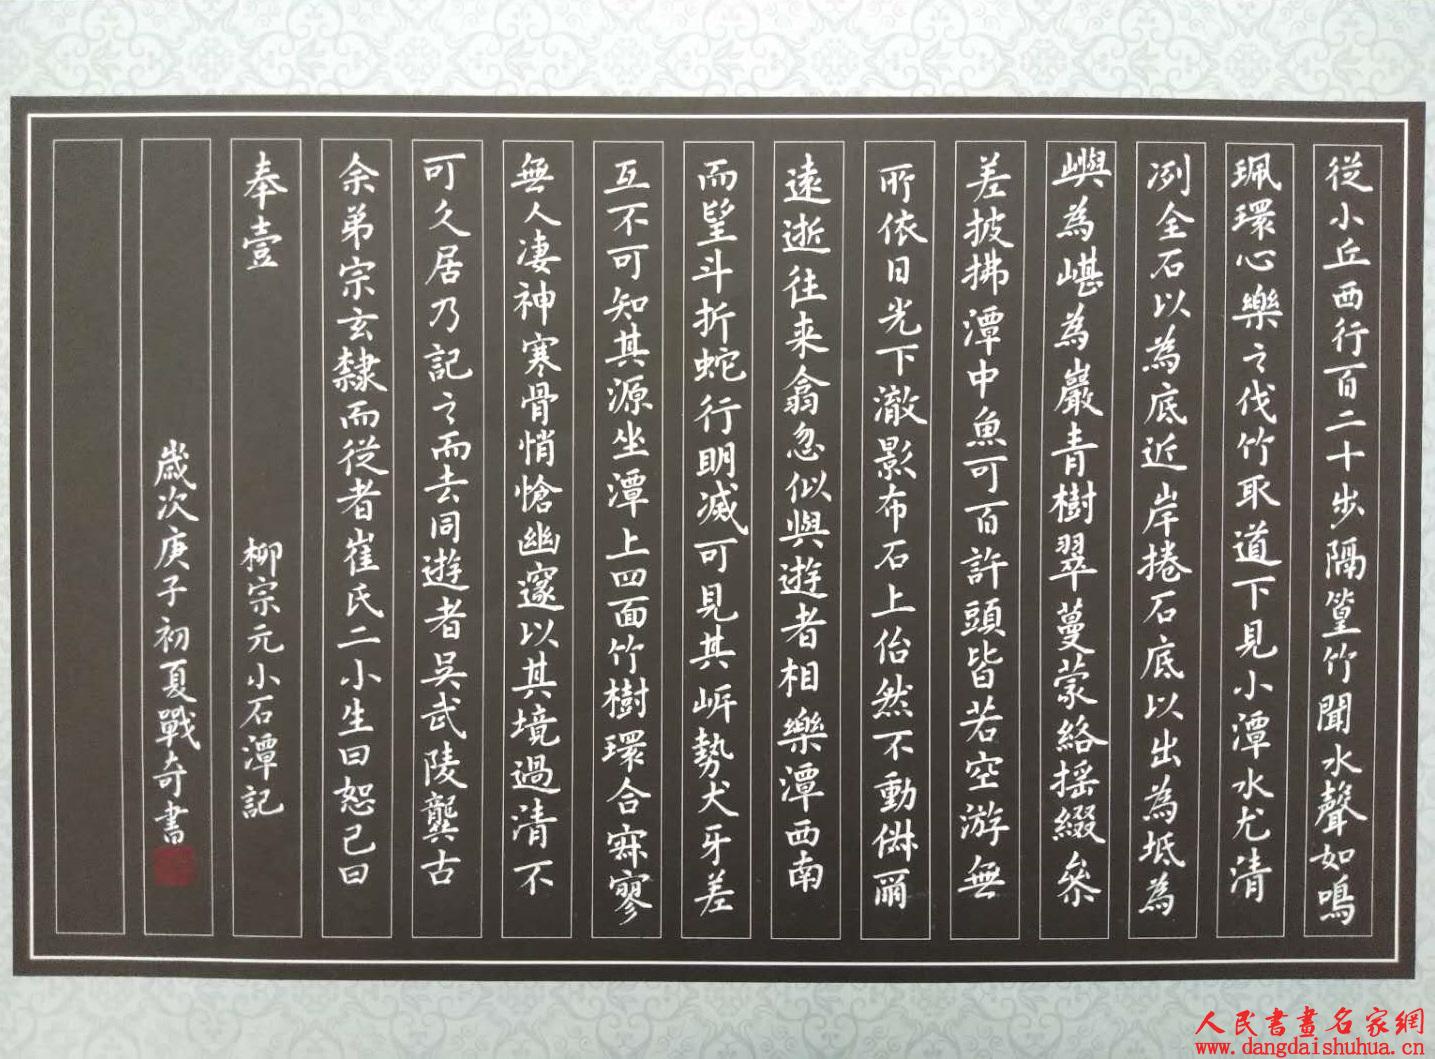 從小丘西行百二十步隔篁竹聞水聲如鳴
珮環心樂之伐竹取道下見小潭水尤清
冽全石以為底近岸捲石底以出為坻為
嶼為嵁為巖青樹翠蔓蒙絡搖綴參
差披拂潭中魚可百許頭皆若空游無
所依日光下澈影布石上佁然不動俶爾
遠逝往來翕忽似與遊者相樂潭西南
而望斗折蛇行明滅可見其岍勢犬牙差
互不可知其源坐潭上四面竹樹環合寂寥
無人凄神寒骨悄愴幽邃以其境過清不
可久居乃記之而去同遊者吳武陵龔古
余弟宗玄隸而從者崔氏二小生曰恕己曰
奉壹 柳宗元小石潭記
歲次庚子初夏戰奇書
人民書畫名家網
www.dangdaishuhua.cn